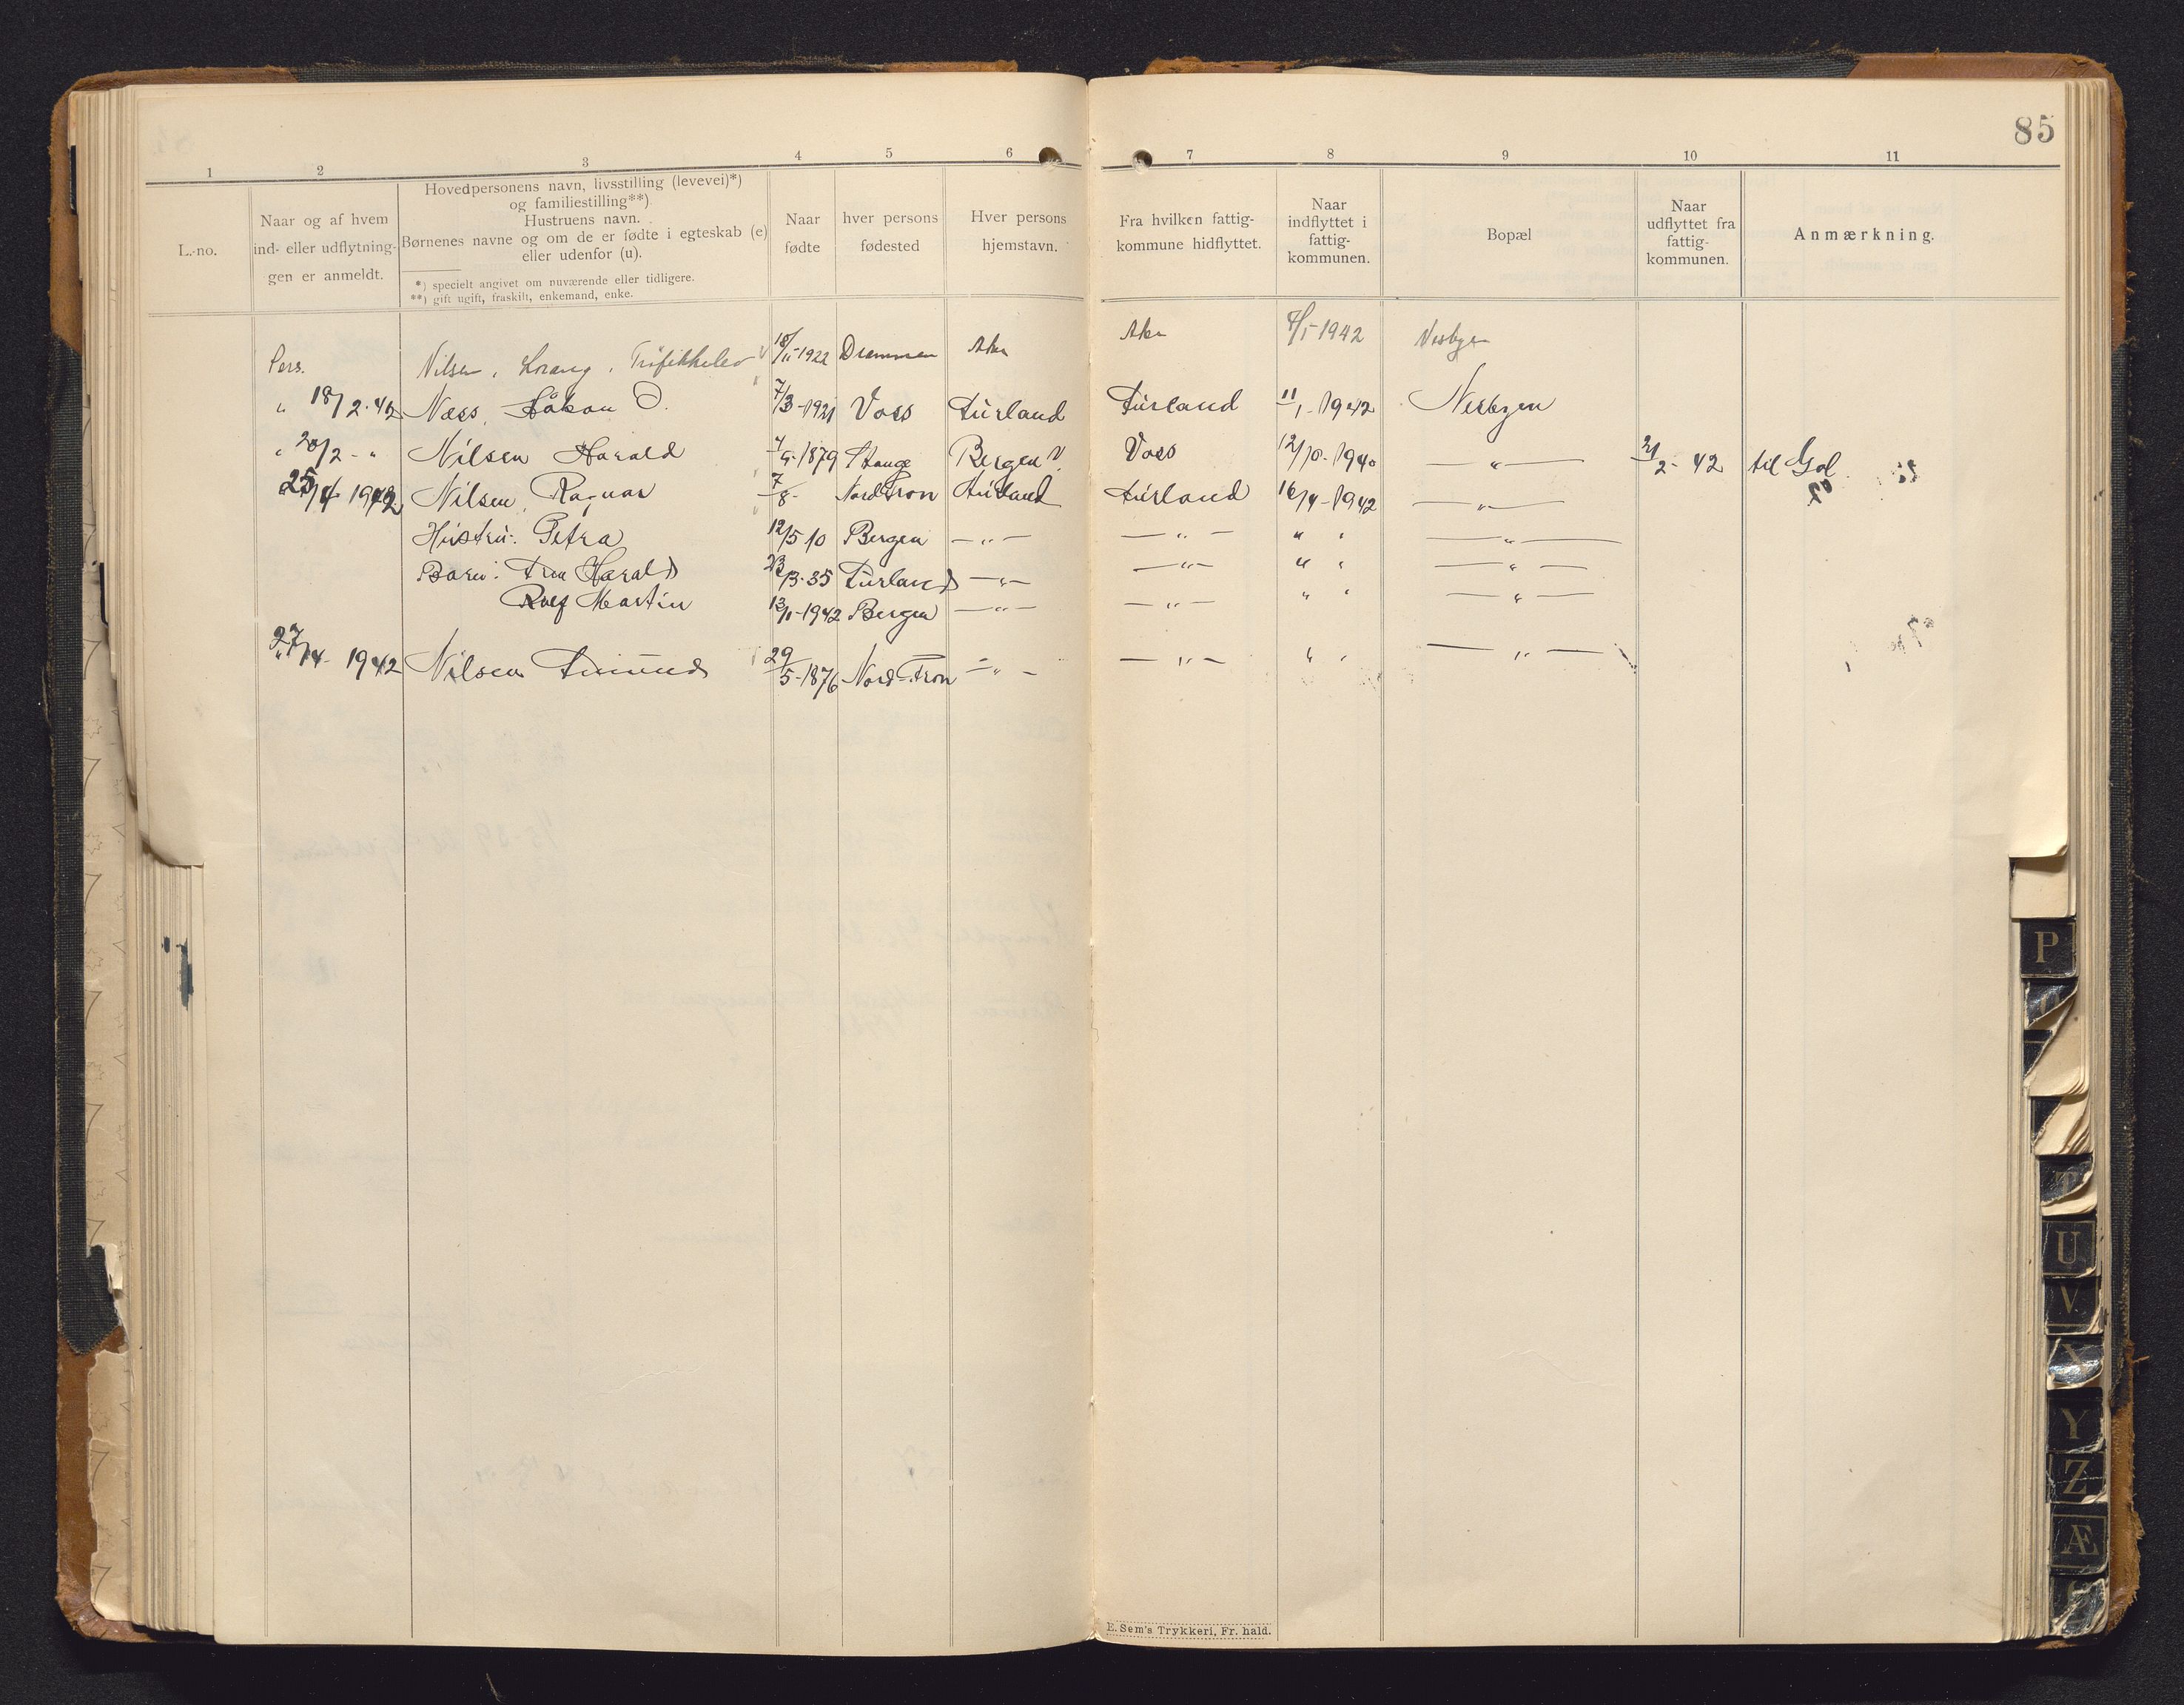 85
1 2 3 4 5 6 7 8 9 10 11
L.-no.
Naar og af hvem
ind- eller udflytnin-
gen er anmeldt.
Hovedpersonens navn, livsstilling (levevei)*)
og familiestilling**).
Hustruens navn.
Børnenes navne og om de er fødte i egteskab (e)
eller udenfor (u).
*) specielt angivet om nuværende eller tidligere.
**) gift ugift, fraskilt, enkemand, enke.
Naar
fødte
hver persons
fødested
Hver persons
hjemstavn.
Fra hvilken fattig-
kommune hidflyttet.
Naar
indflyttet i
fattig-
kommunen.
Bopæl
Naar
udflyttet fra
fattig-
kommunen.
Anmærkning.
Pers. Nilsen, Trafikkelev 18/11-1922 Drammen Aker Aker 1942 Nesbyen
" 18/2-42 Næss, Håkon O. 7/3-1921 Voss Aurland Aurland 11/1-1942 Nesbyen
" 20/2 - " Nilsen Harald 1879 Stange Bergen Voss 12/10-1940 — " — 21/2-42 til Gol
25/4 1942 Nilsen, Ragnar 7/8- Nord Fron Aurland Aurland 16/4-1942 — " —
Hustru: Petra 12/5 10 Bergen — " — — " — " " — " —
Barn: Harald 23/3-35 Aurland — " — — " — " " — " —
Rolf Martin 13/1-1942 Bergen — " — — " — " " — " —
" 27/4-1942 Nilsen Amund 29/5-1876 Nord-Fron — " — — " — " " — " —
P
T
U
V
X
Y
Z
Æ
E. Sem's Trykkeri, Fr. hald.